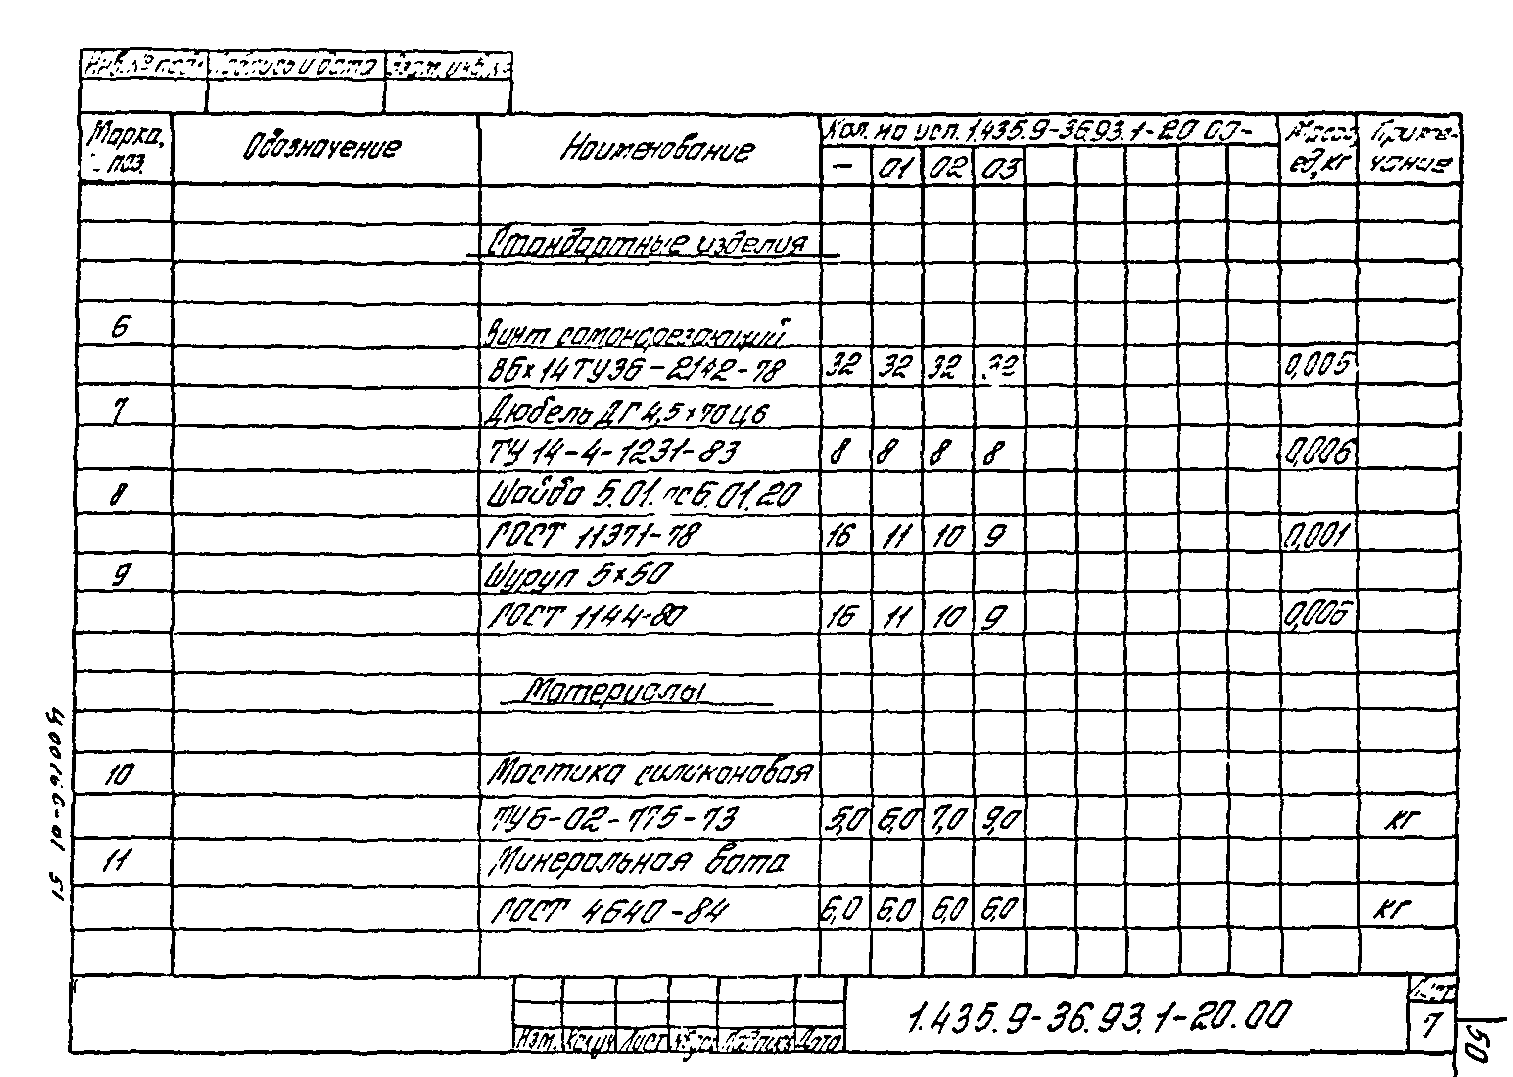 Инв.№ подл. Подпись и дата Взам. инв.№
Марка, поз. Обозначение Наименование Кол. на исп. 1.435.9-36.93.1-20.00- Масса ед, кг Приме-чание
– 01 02 03
Стандартные изделия
6 Винт самонарезающий
В6×14 ТУ36-2142-78 32 32 32 32 0,005
7 Дюбель ДГ 4,5×70Ц6
ТУ 14-4-1231-83 8 8 8 8 0,006
8 Шайба 5.01. 6.01.20
ГОСТ 11371-78 16 11 10 9 0,001
9 Шуруп 5×50
ГОСТ 1144-80 16 11 10 9 0,006
Материалы
10 Мастика силиконовая
ТУ6-02-775-73 5,0 6,0 7,0 9,0 кг
11 Минеральная вата
ГОСТ 4640-84 6,0 6,0 6,0 6,0 кг
Изм. Кол.уч Лист №док. Подпись Дата
1.435.9-36.93.1-20.00
Лист
7
50
51